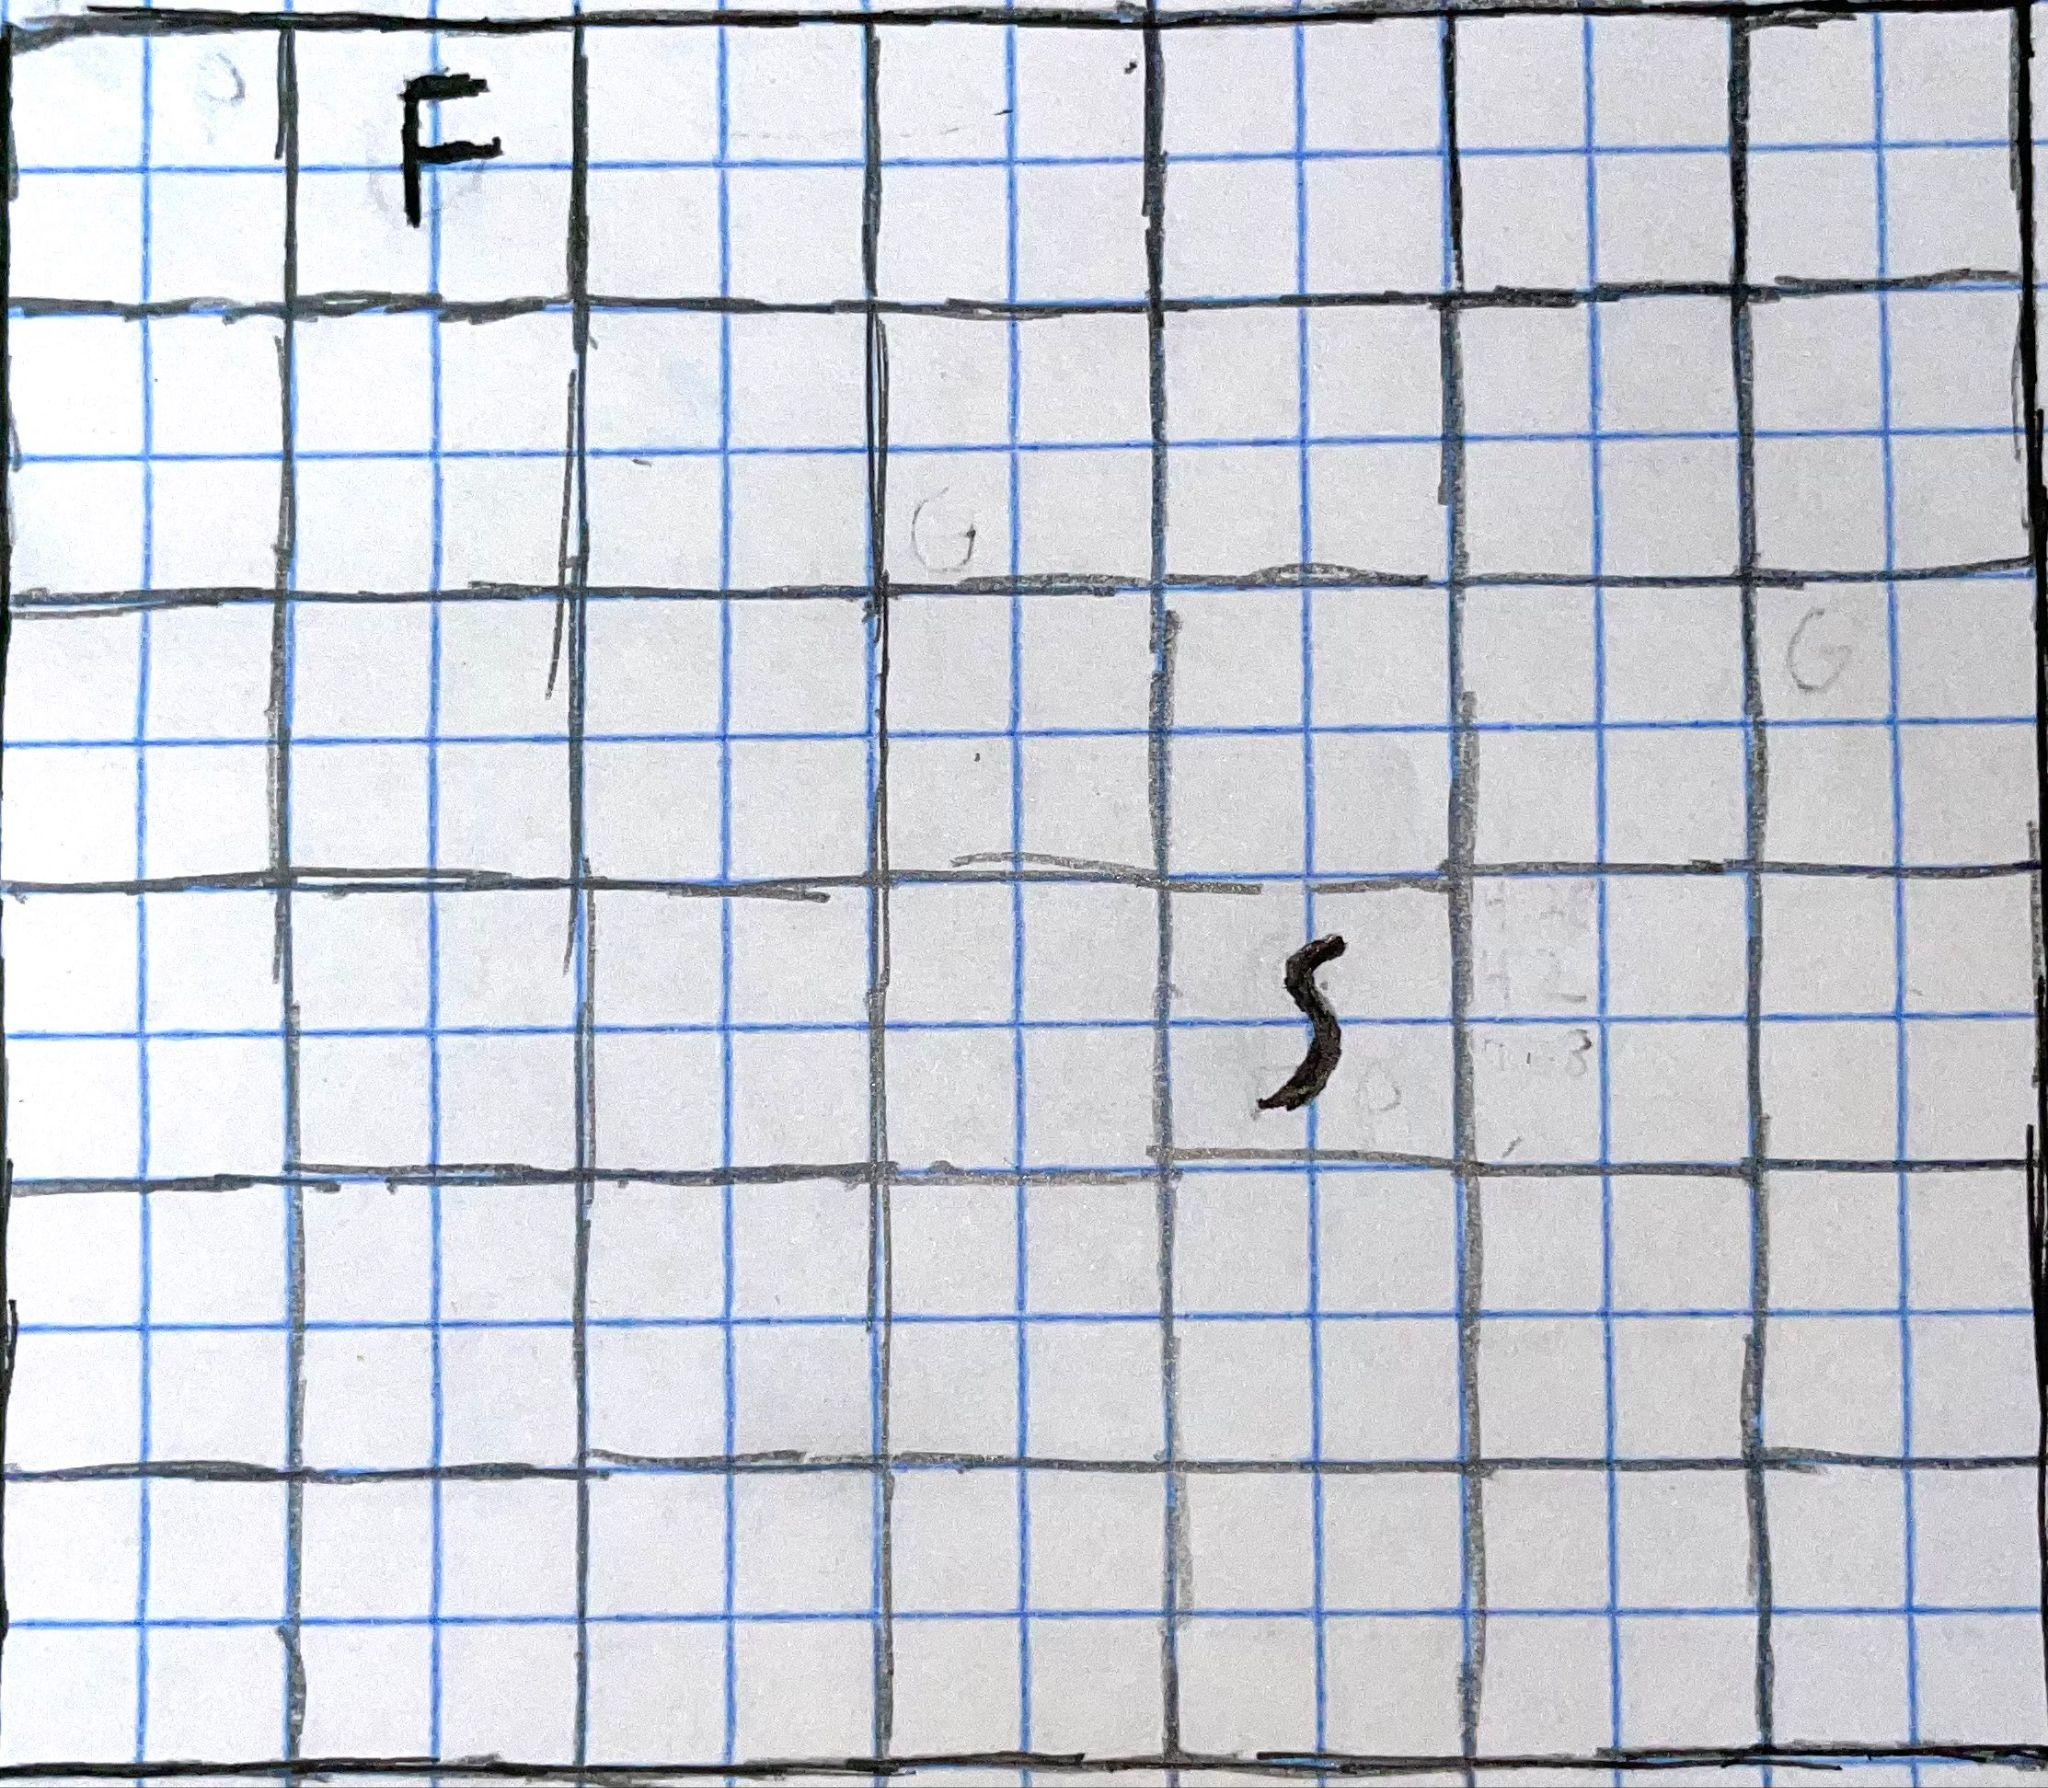 F
G
G
S